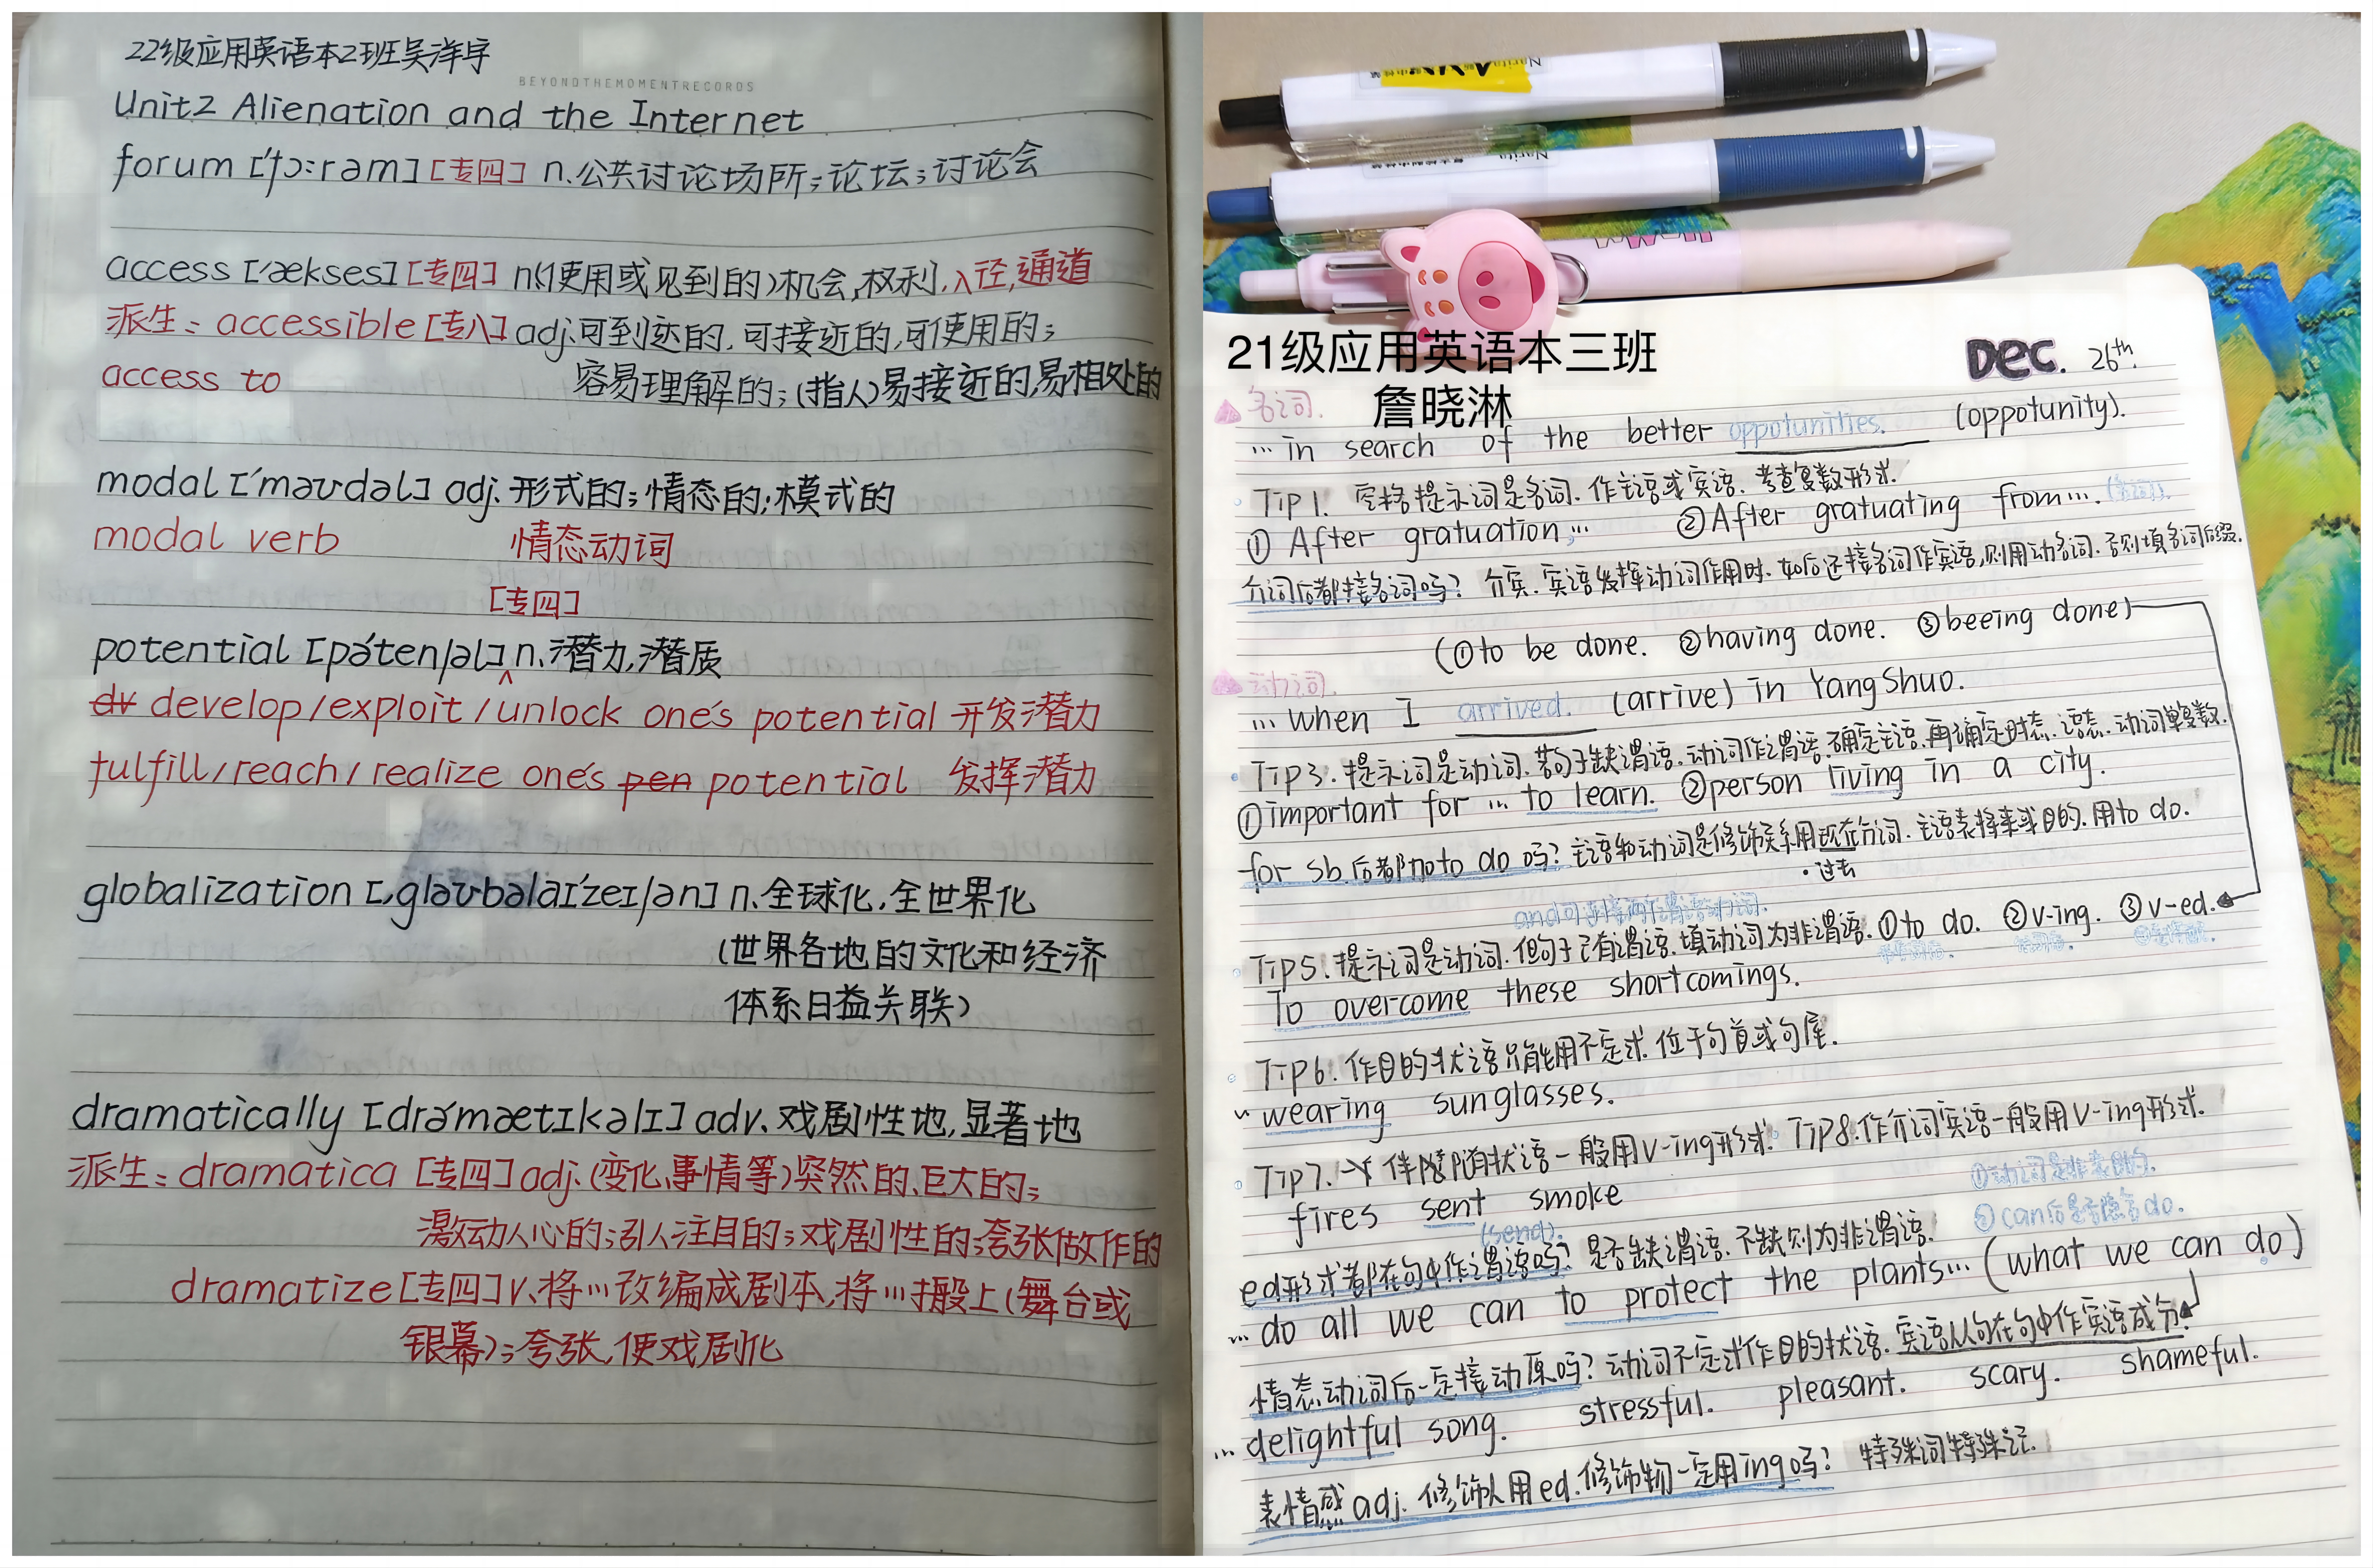 22级应用英语本2班吴洋宇
BEYONDTHEMOMENTRECORDS
Unit2 Alienation and the Internet
forum ['fɔ:rəm] [专四] n.公共讨论场所;论坛;讨论会
access ['ækses] [专四] n.(使用或见到的)机会,权利,入径,通道
派生: accessible [专八] adj.可到达的,可接近的,可使用的;
access to 容易理解的;(指人)易接近的,易相处的
modal ['məʊdəl] adj.形式的;情态的;模式的
modal verb 情态动词
[专四]
potential [pə'tenʃəl] n.潜力,潜质
dv develop/exploit/unlock one's potential 开发潜力
fulfill/reach/realize one's pen potential 发挥潜力
globalization [,gləʊbəlaɪ'zeɪʃən] n.全球化,全世界化
(世界各地的文化和经济
体系日益关联)
dramatically [drə'mætɪkəlɪ] adv.戏剧性地,显著地
派生: dramatica [专四] adj.(变化、事情等)突然的、巨大的;
激动人心的;引人注目的;戏剧性的;夸张做作的
dramatize [专四] v.将…改编成剧本,将…搬上(舞台或
银幕);夸张,使戏剧化
21级应用英语本三班
詹晓淋
Dec. 26th.
名词.
…in search of the better oppotunities. (oppotunity).
Tip1. 空格提示词是名词.作主语或宾语.考查复数形式.
① After gratuation,… ②After gratuating from…. (名词).
介词后都接名词吗? 介宾.宾语发挥动词作用时.如后还接名词作宾语,则用动名词.否则填名词后缀.
(①to be done. ②having done. ③beeing done)
动词.
…when I arrived. (arrive) in YangShuo.
Tip3.提示词是动词.若句子缺谓语.动词作谓语.确定主语.再确定时态.语态.动词单复数.
①important for … to learn. ②person living in a city.
for sb.后都加to do吗? 主语和动词是修饰关系用现在分词.主语表将来或目的.用to do.
·过去
and可连接两个谓语动词.
Tip5.提示词是动词.但句子已有谓语.填动词为非谓语.①to do. ②v-ing. ③v-ed.
To overcome these shortcomings.
Tip6.作目的状语只能用不定式.位于句首或句尾.
wearing sunglasses.
Tip7. 伴随状语一般用v-ing形式. Tip8.作介词宾语一般用v-ing形式.
fires sent smoke
(send).
①动词是非表目的.
②can后是否隐含do.
ed形式都在句中作谓语吗? 是否缺谓语.不缺则为非谓语.
…do all we can to protect the plants…(what we can do)
情态动词后一定接动原吗? 动词不定式作目的状语.宾语从句在句中作宾语成分.
…delightful song. stressful. pleasant. scary. shameful.
表情感adj.修饰人用ed.修饰物一定用ing吗? 特殊词特殊记.